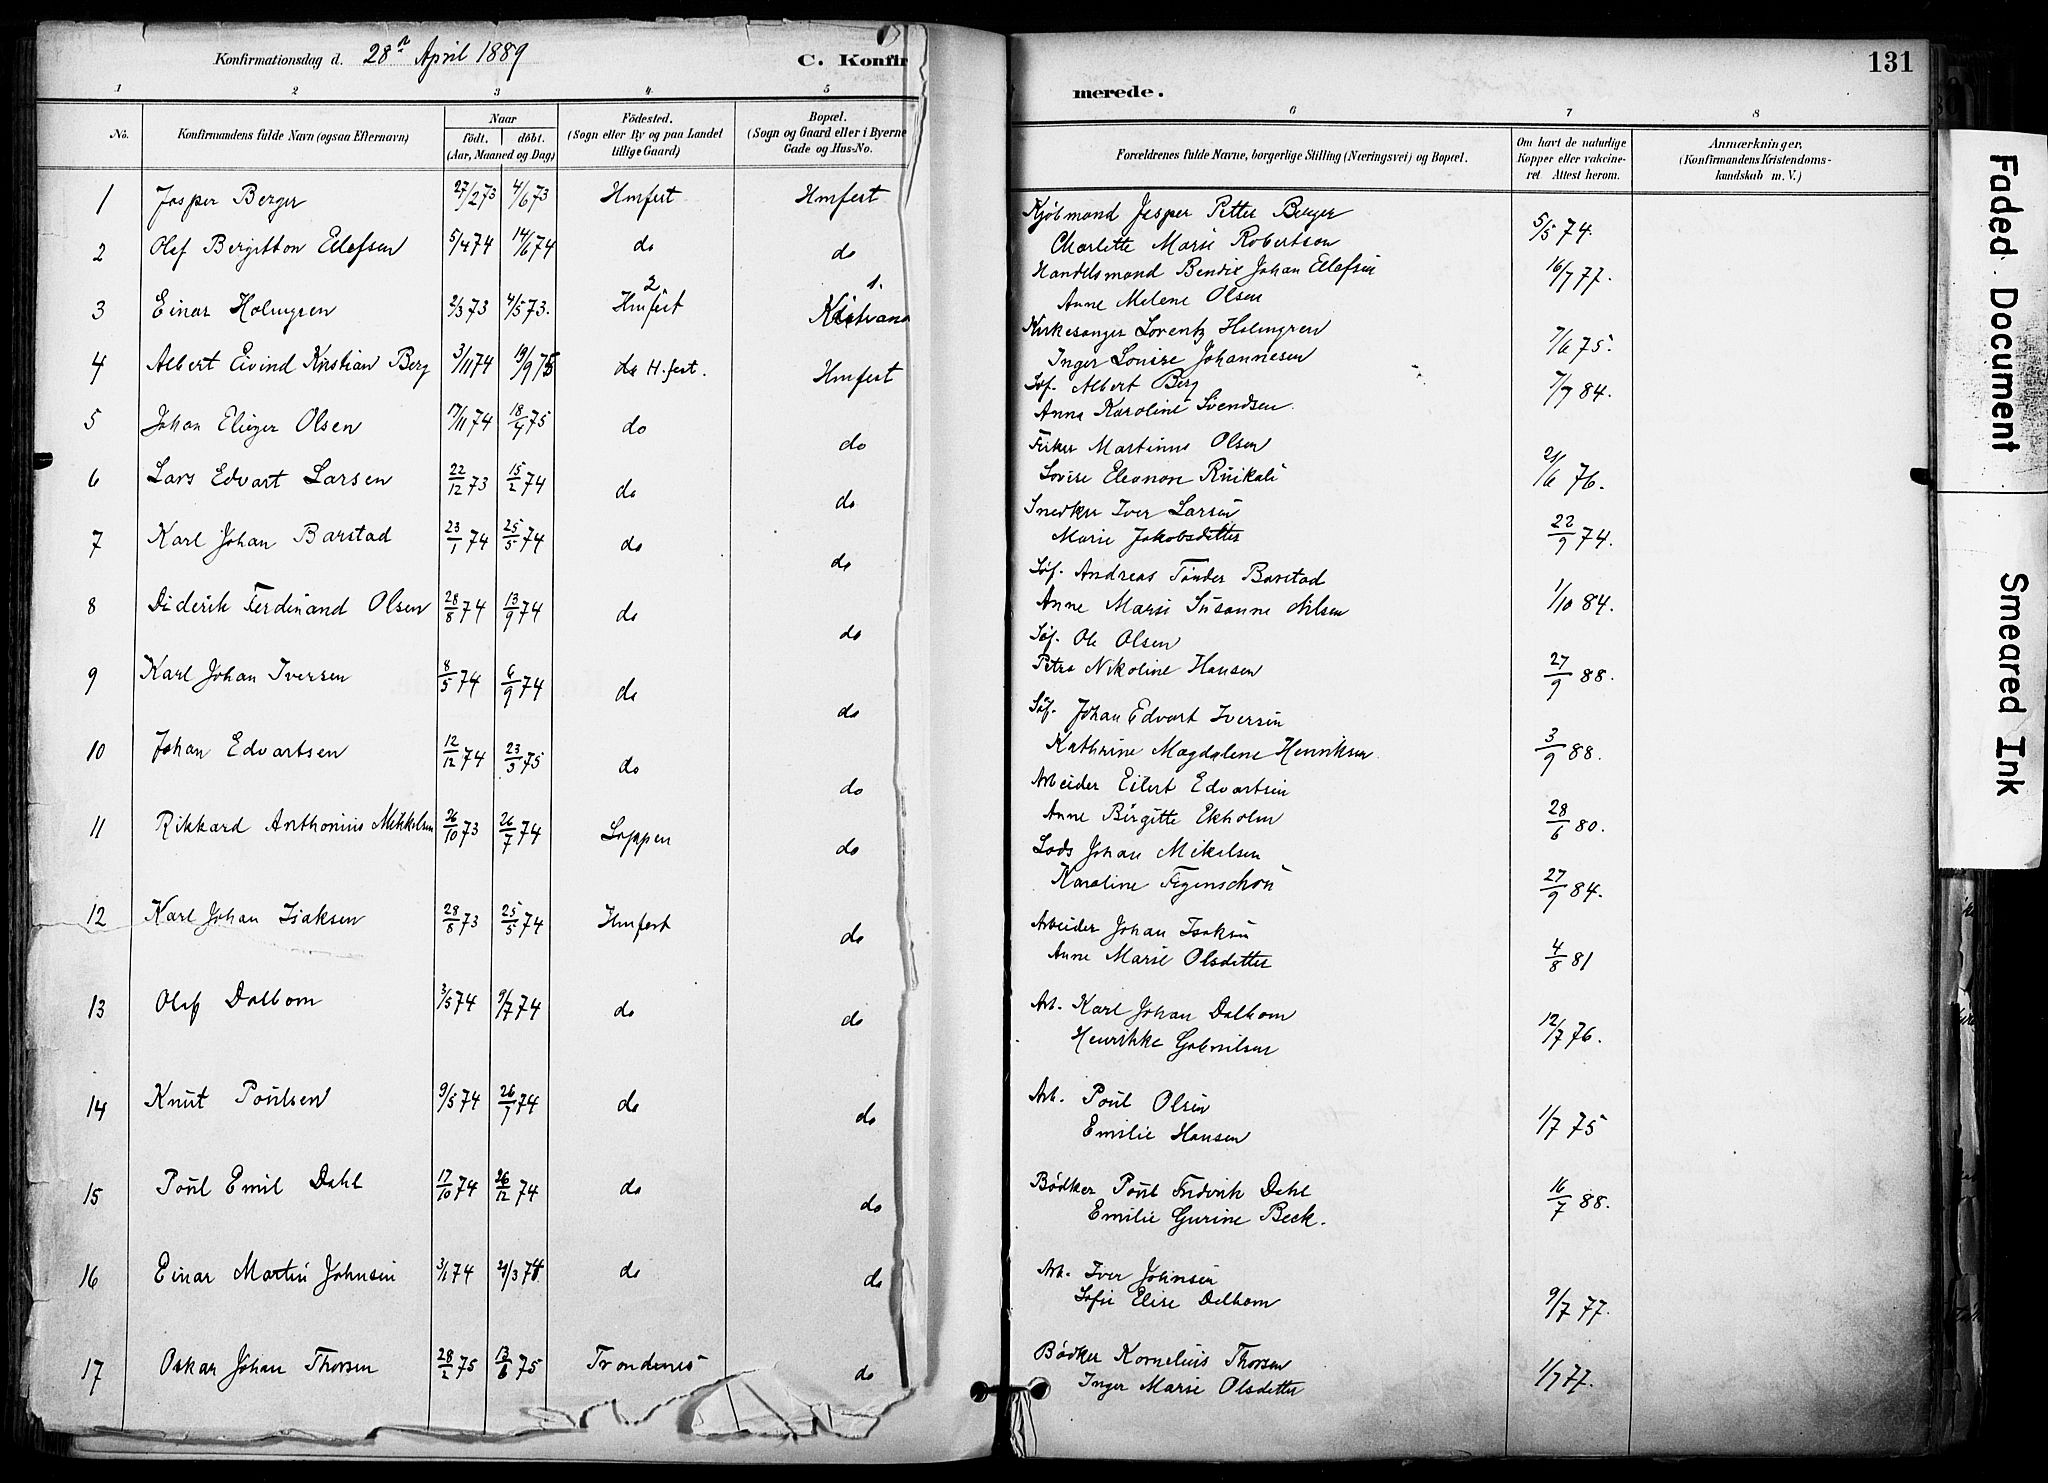 Konfirmationsdag d. 28n April 1889
C. Konfir
merede.
131
1 2 3 4. 5 6 7 8
No. Konfirmandens fulde Navn (ogsaa Efternavn) Naar født. døbt. (Aar, Maaned og Dag) Fødested. (Sogn eller By og paa Landet tillige Gaard) Bopæl. (Sogn og Gaard eller i Byerne Gade og Hus-No. Forældrenes fulde Navne, borgerlige Stilling (Næringsvei) og Bopæl. Om havt de naturlige Kopper eller vakcineret. Attest herom. Anmærkninger, (Konfirmandens Kristendomskundskab m. V.)
1 Jasper Berger 27/2 73 4/6 73 Hmfest Hmfest Kjøbmand Jesper Petter Berger 5/5 74.
Charlotte Marie Robertson
2 Olaf Bergitton Ellefsen 5/4 74 14/6 74 do do Handelsmand Bendix Johan Ellefsen 16/7 77.
Anne Melene Olsen
3 Einar Holmgren 2/3 73 4/5 73. 2 Hmfest 1. Kirkesanger Lorentz Holmgren 7/6 75.
Inger Louise Johannesen
4 Albert Eivind Kristian Berg 3/11 74 19/9 75 do H.fest. Hmfest Søf. Albert Berg 7/9 84.
Anna Karoline Svendsen.
5 Johan Elieser Olsen 17/11 74 18/4 75 do do Fisker Martinus Olsen 21/6 76.
Lovise Eleonore
6 Lars Edvart Larsen 22/12 73 15/2 74 do do Snedker Iver Larsen 22/9 74.
Marie Jakobsdatter
7 Karl Johan Barstad 23/1 74 25/5 74 do do Søf. Andreas Tønder Barstad 1/10 84.
Anne Marie Susanne Nilsen
8 Diderik Ferdinand Olsen 28/8 74 13/9 74 do do Søf. Ole Olsen 27/9 88.
Petra Nikoline Hansen
9 Karl Johan Iversen 8/5 74 6/9 74 do do Søf. Johan Edvart Iversen 3/9 88.
Kathrine Magdalene Henriksen
10 Johan Edvartsen 12/12 74 23/3 75 do do Arbeider Eilert Edvartsen 28/6 80.
Anne Birgitte Ekholm
11 Rikkard Anthonius Mikkelsen 26/10 73 26/7 74 Loppen do Lods Johan Mikelsen 27/9 84.
Karoline Figenschou
12 Karl Johan Isaksen 28/8 73 25/5 74 Hmfest do Arbeider Johan Isaksen 4/8 81
Anne Marie Olsdatter
13 Olaf Dalbom 3/5 74 9/7 74 do do Arb. Karl Johan Dalbom 12/7 76.
Henrikke Gabrielsen
14 Knut Poulsen 9/5 74 26/7 74 do do Arb. Poul Olsen 1/7 75
Emilie Hansen
15 Poul Emil Dahl 17/10 74 26/12 74 do do Bødker Poul Fredrik Dahl 16/7 88.
Emilie Gurine Beck.
16 Einar Martin Johnsen 3/1 74 21/3 74 do do Arb. Iver Johnsen 9/7 77.
Sofie Elise Dalbom
17 Oskar Johan Thorsen 28/2 75 13/6 75 Trondenes do Bødker Kornelius Thorsen 1/7 77.
Inger Marie Olsdatter
Faded Document
Smeared Ink